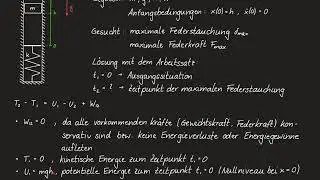 m
Anfangsbedingungen: x(0)=h , ẋ(0)=0
Gesucht: maximale Federstauchung dmax
maximale Federkraft Fmax
Lösung mit dem Arbeitssatz:
t₀ = 0 → Ausgangssituation
t₁ = ? → Zeitpunkt der maximalen Federstauchung
T₀ - T₁ = U₁ - U₀ + Wa
• Wa = 0 , da alle vorkommenden Kräfte (Gewichtskraft, Federkraft) kon-
servativ sind bzw. keine Energieverluste oder Energiegewinne
auftreten
• T₀ = 0 , kinetische Energie zum Zeitpunkt t₀ = 0
• U₀ = mgh , potentielle Energie zum Zeitpunkt t₀ = 0 (Nullniveau bei x=0)